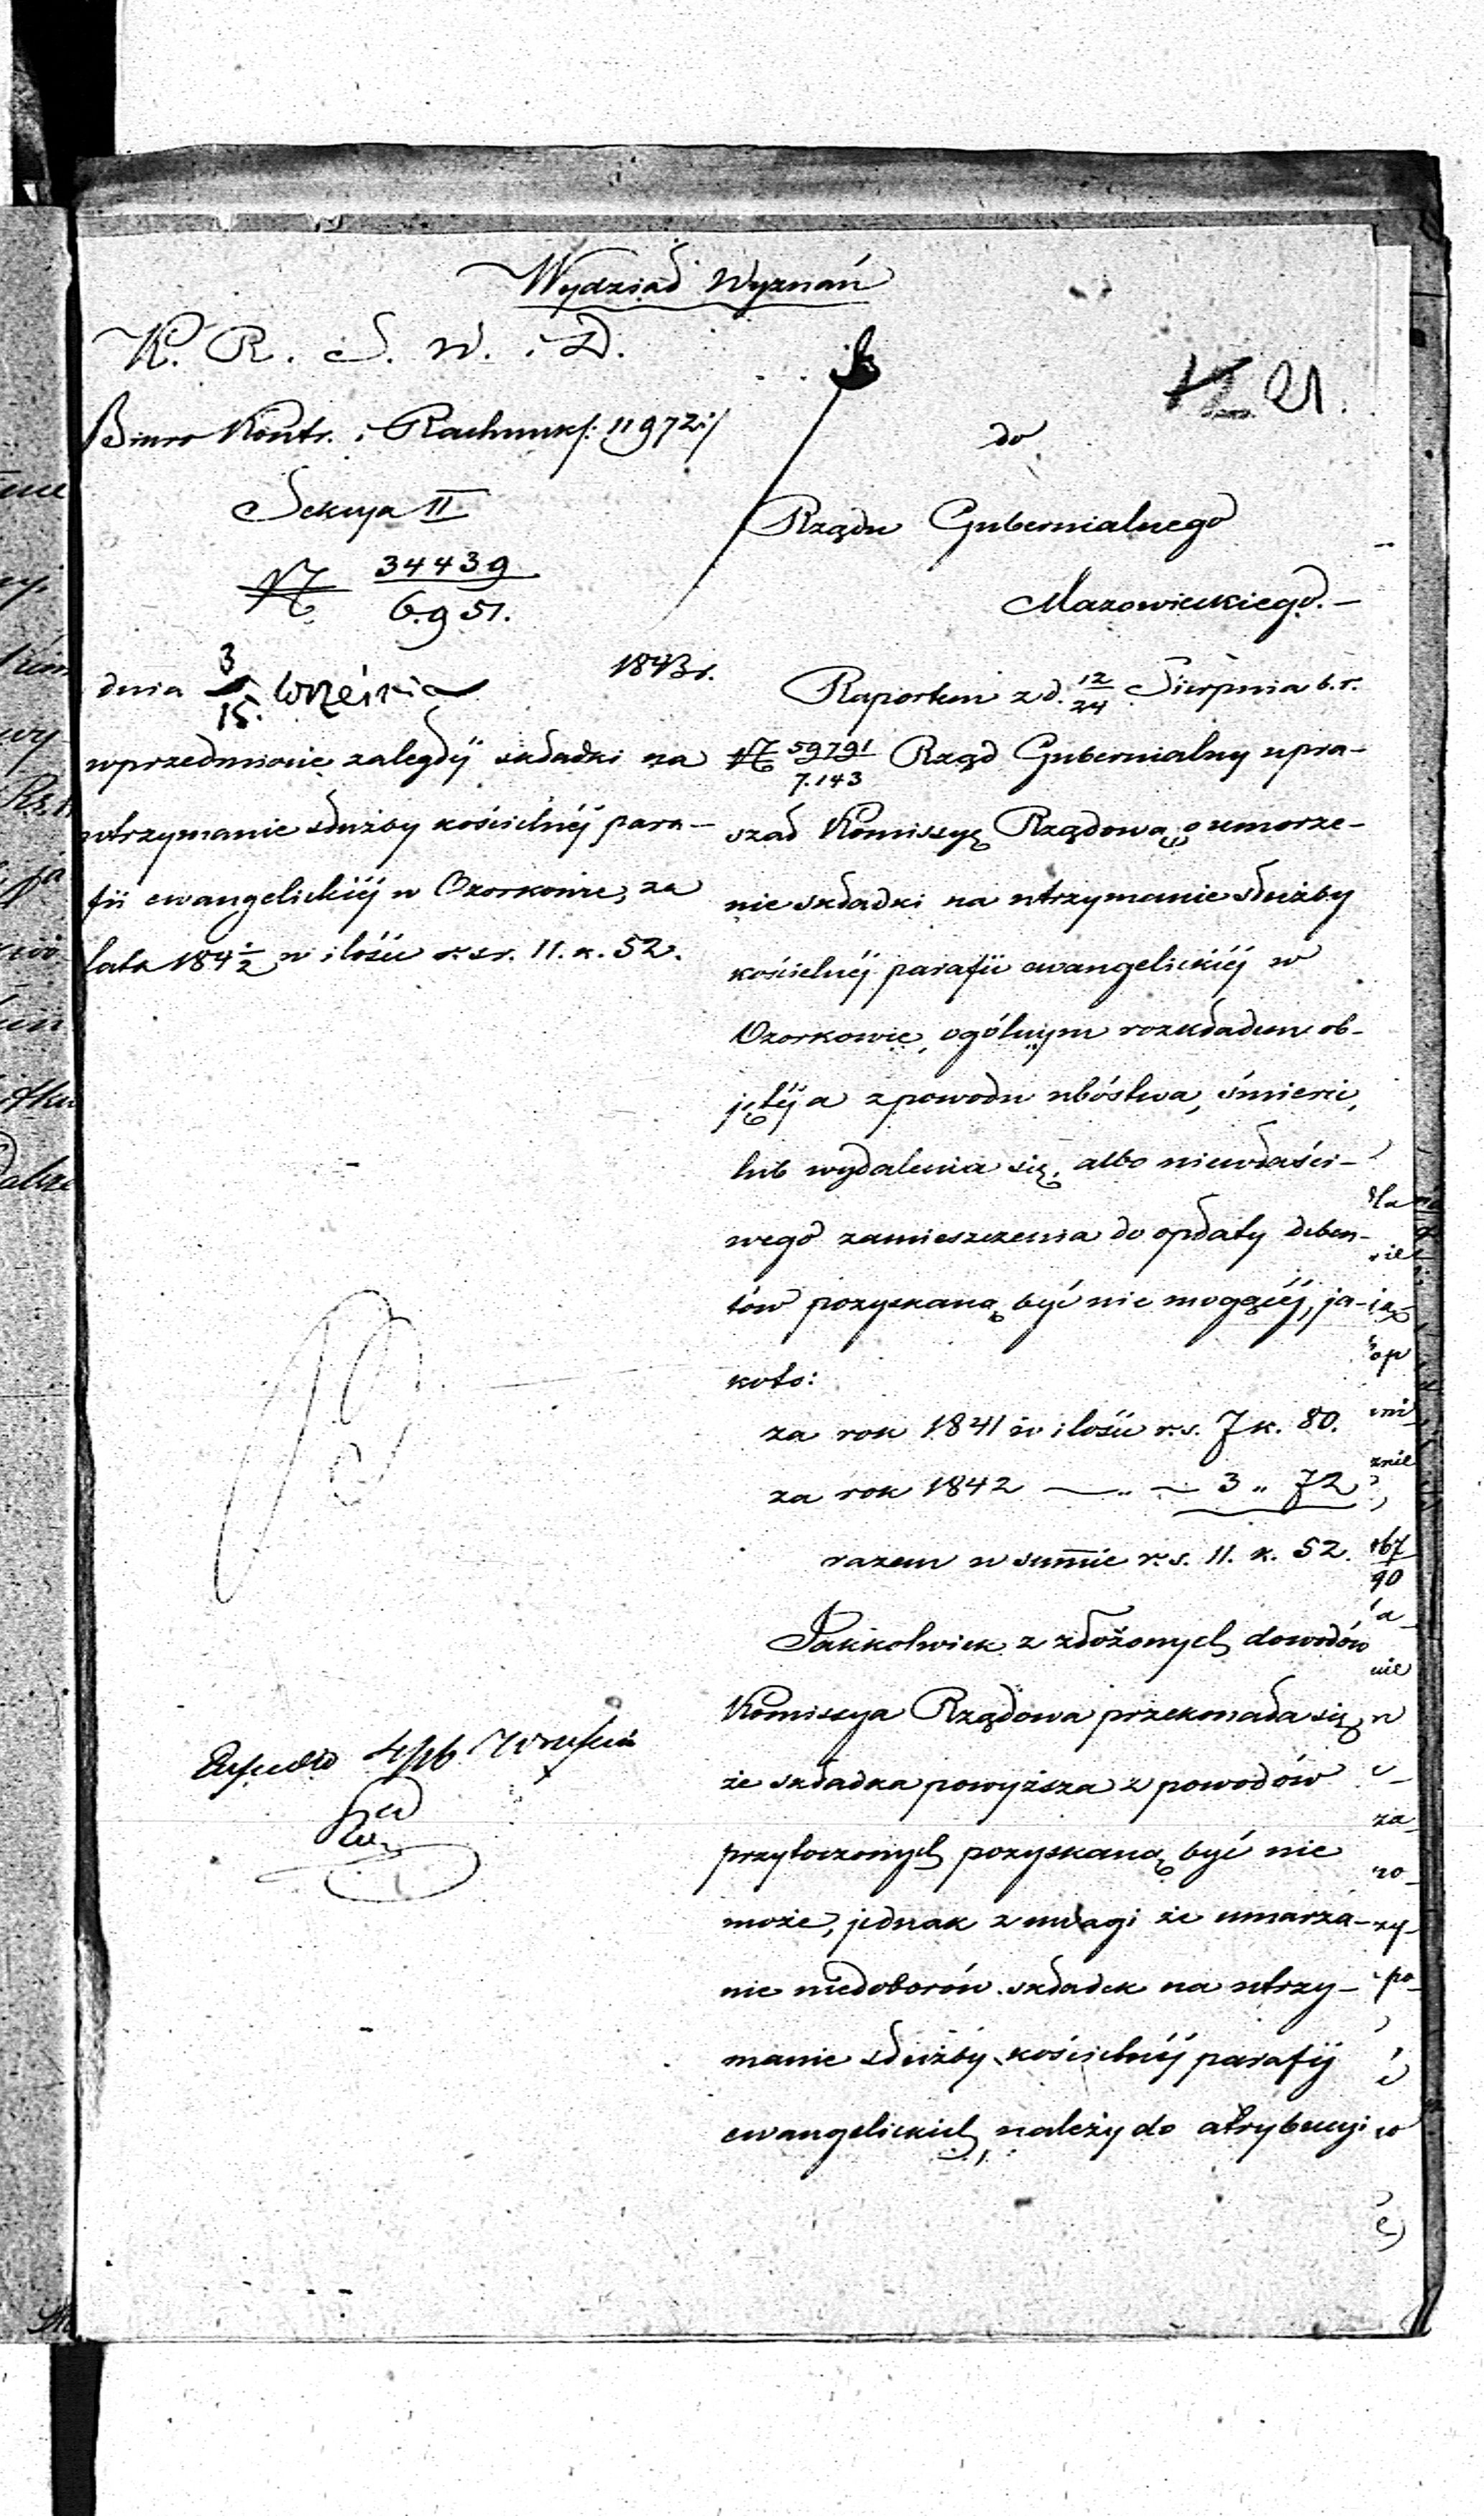 Wydział Wyznań
K. R. S. W. i D.
Biuro Kontr. i Rachunk/: 11972:/
Sekcya II
N 34439
6.951.
dnia 3/15. Września 1843 r.
wprzedmiocie zaległéj składki na
utrzymanie służby kościelnéj para-
fii ewangelickiéj w Ozorkowie, za
lata 184 1/2 w ilości r. sr. 11. k. 52.
12 21.
do
Rządu Gubernialnego
Mazowieckiego.—
Raportem z d. 12/24 Sierpnia b. r.
N 59791/7.143 Rząd Gubernialny upra-
szał Kommissyę Rządową o umorze-
nie składki na utrzymanie służby
kościelnéj parafii ewangelickiéj w
Ozorkowie, ogólnym rozkładem ob-
jętéj a z powodu ubóstwa, śmierci,
lub wydalenia się, albo niewłaści-
wego zamieszczenia do opłaty deben-
tów pozyskaną być nie mogącéj, ja-
koto:
za rok 1841 w ilości r. s. 7 k. 80.
za rok 1842 — „ — 3 „ 72
razem w summie r. s. 11. k. 52.
Jakkolwiek z złożonych dowodów
Kommissya Rządowa przekonała się,
że składka powyższa z powodów
przytoczonych pozyskaną być nie
może, jednak z uwagi że umarza-
nie niedoborów składek na utrzy-
manie służby kościelnéj parafij
ewangelickich, należy do atrybucyi